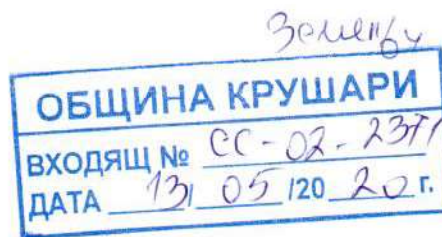 ОБЩИНА КРУШАРИ
ВХОДЯЩ № СС-02-23
ДАТА 13/ 05 /20 20 г.